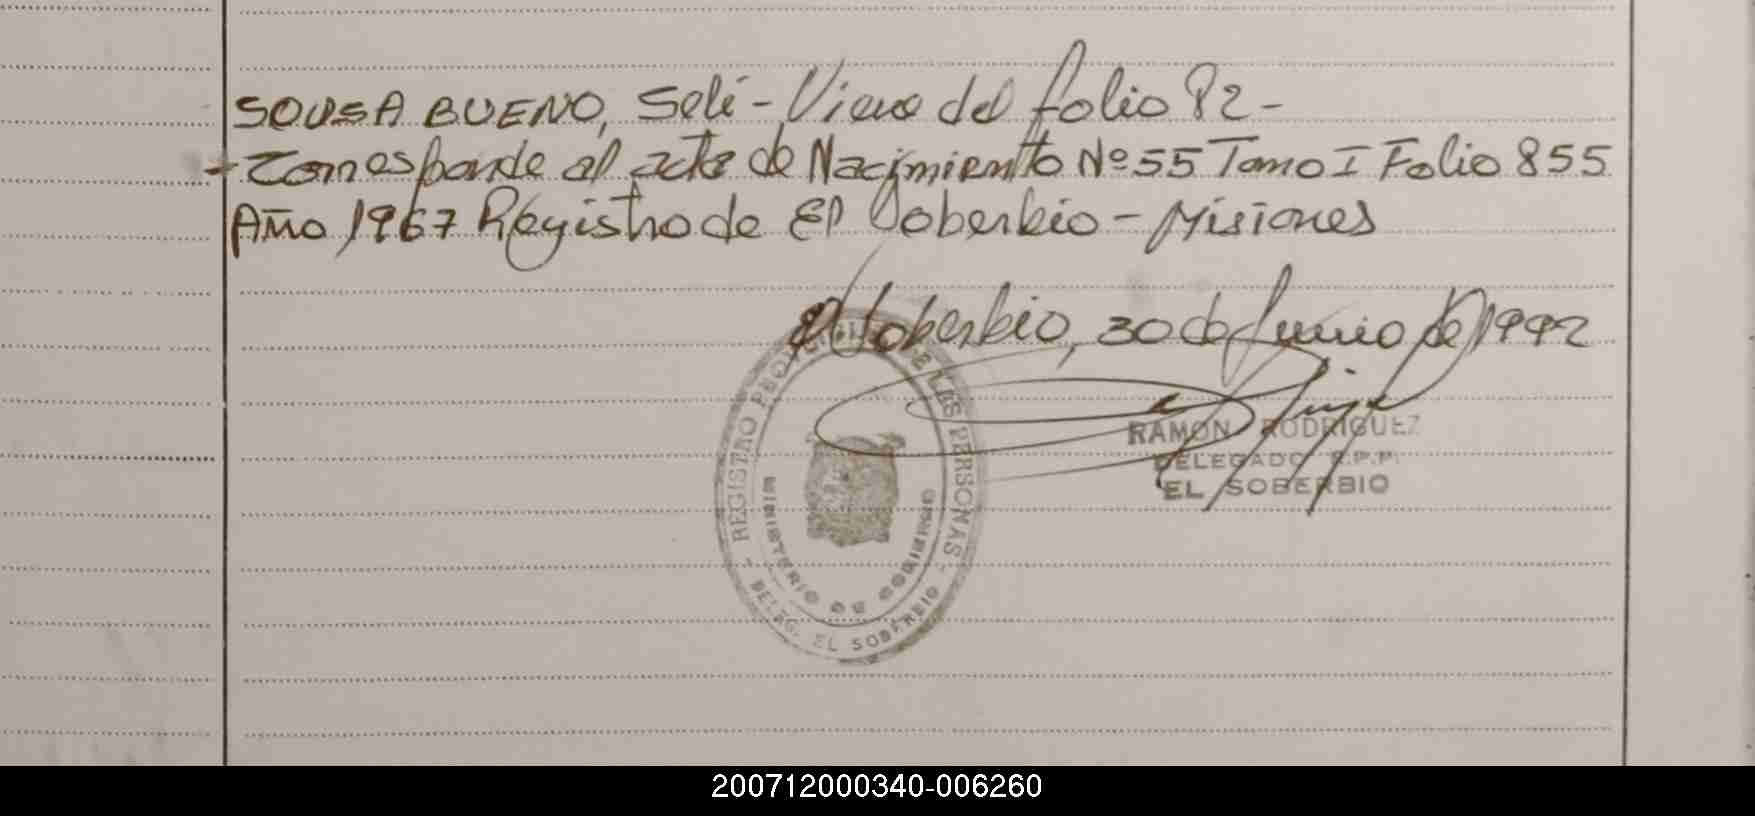 SOUSA BUENO, Seli - Viene del folio 82 -
- Corresponde al acta de Nacimiento Nº 55 Tomo I Folio 855
Año 1967 Registro de El Soberbio - Misiones
El Soberbio, 30 de Junio de 1992
REGISTRO PROVINCIAL DE LAS PERSONAS
MINISTERIO DE GOBIERNO
- DELEG. EL SOBERBIO -
RAMON RODRIGUEZ
DELEGADO R.P.P.
EL SOBERBIO
200712000340-006260